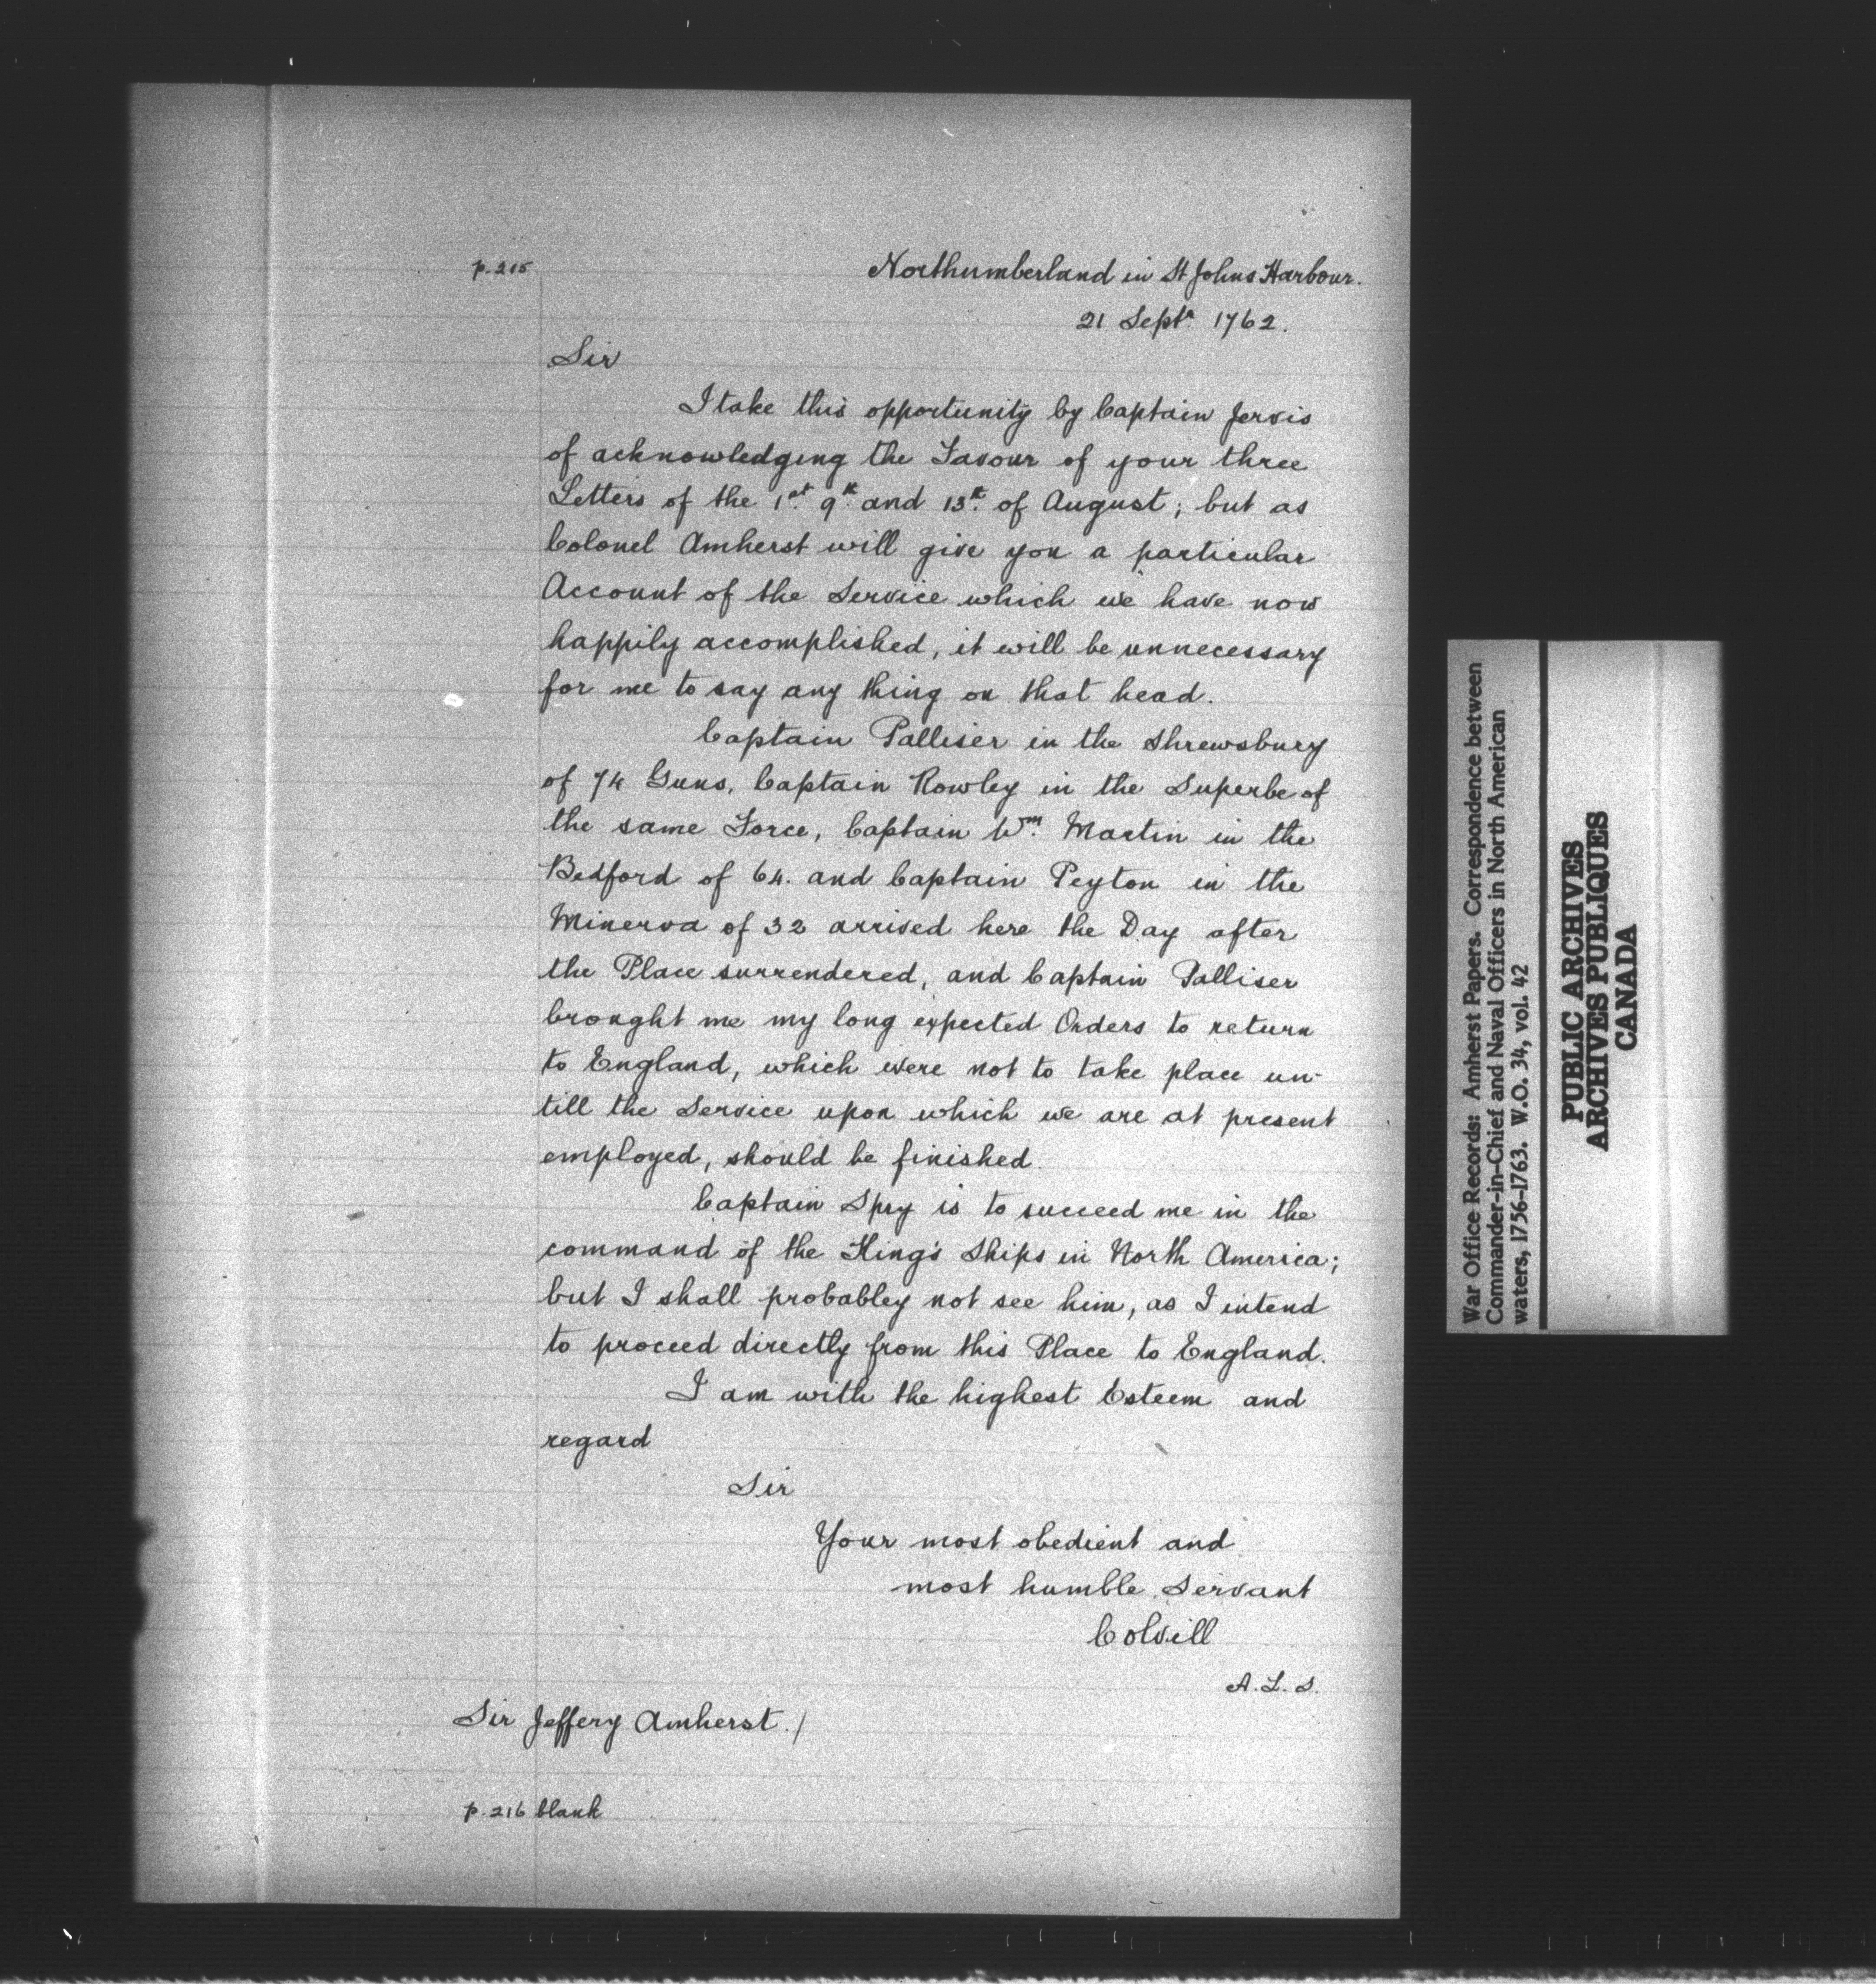 p. 215
Northumberland in St Johns Harbour.
21 Septr. 1762.
Sir
I take this opportunity by Captain Jervis
of acknowledging the Favour of your three
Letters of the 1st. 9th. and 13th. of August; but as
Colonel Amherst will give you a particular
Account of the Service which we have now
happily accomplished, it will be unnecessary
for me to say any thing on that head.
Captain Palliser in the Shrewsbury
of 74 Guns, Captain Rowley in the Superbe of
the same Force, Captain Wm. Martin in the
Bedford of 64. and Captain Peyton in the
Minerva of 32 arrived here the Day after
the Place surrendered, and Captain Palliser
brought me my long expected Orders to return
to England, which were not to take place un-
till the Service upon which we are at present
employed, should be finished.
Captain Spry is to succeed me in the
command of the King's Ships in North America;
but I shall probabley not see him, as I intend
to proceed directly from this Place to England.
I am with the highest Esteem and
regard
Sir
Your most obedient and
most humble Servant
Colvill
A.L.S.
Sir Jeffery Amherst./
p. 216 blank
War Office Records: Amherst Papers. Correspondence between
Commander-in-Chief and Naval Officers in North American
waters, 1756-1763. W.O. 34, vol. 42
PUBLIC ARCHIVES
ARCHIVES PUBLIQUES
CANADA